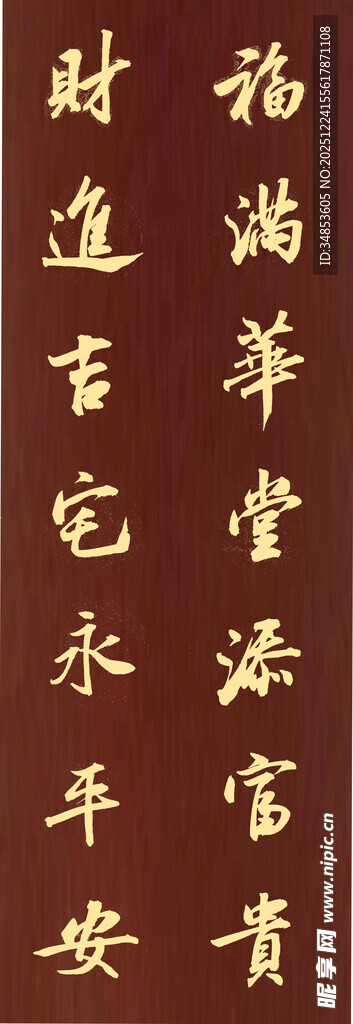 福滿華堂添富貴
財進吉宅永平安
ID:34853605 NO:20251224155617871108
昵享网 www.nipic.cn